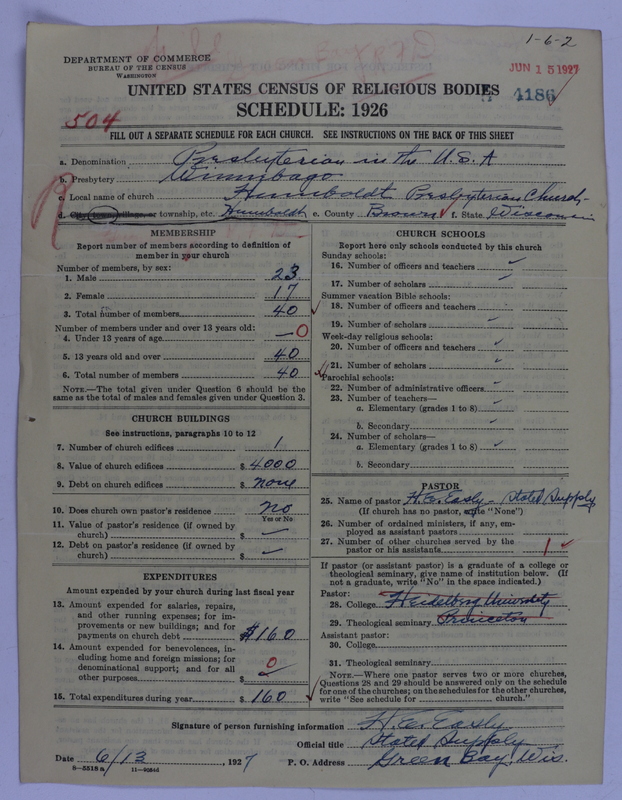 1-6-2
DEPARTMENT OF COMMERCE
BUREAU OF THE CENSUS
WASHINGTON
JUN 15 1927
UNITED STATES CENSUS OF RELIGIOUS BODIES
4186
SCHEDULE: 1926
504
FILL OUT A SEPARATE SCHEDULE FOR EACH CHURCH. SEE INSTRUCTIONS ON THE BACK OF THIS SHEET
a. Denomination Presbyterian in the U.S.A
b. Presbytery Winnibago
c. Local name of church Humboldt Presbyterian Church
d. City, town, village, or township, etc. Humboldt e. County Brown f. State Wisconsin
MEMBERSHIP
Report number of members according to definition of
member in your church
Number of members, by sex:
1. Male 23
2. Female 17
3. Total number of members 40
Number of members under and over 13 years old:
4. Under 13 years of age — 0
5. 13 years old and over 40
6. Total number of members 40
NOTE.—The total given under Question 6 should be the
same as the total of males and females given under Question 3.
CHURCH BUILDINGS
See instructions, paragraphs 10 to 12
7. Number of church edifices 1
8. Value of church edifices $ 4000
9. Debt on church edifices $ none
10. Does church own pastor's residence? no
Yes or No
11. Value of pastor's residence (if owned by
church) $
12. Debt on pastor's residence (if owned by
church) $
EXPENDITURES
Amount expended by your church during last fiscal year
13. Amount expended for salaries, repairs,
and other running expenses; for im-
provements or new buildings; and for
payments on church debt $160
14. Amount expended for benevolences, in-
cluding home and foreign missions; for
denominational support; and for all
other purposes $ 0
15. Total expenditures during year $ 160
CHURCH SCHOOLS
Report here only schools conducted by this church
Sunday schools:
16. Number of officers and teachers
17. Number of scholars
Summer vacation Bible schools:
18. Number of officers and teachers
19. Number of scholars
Week-day religious schools:
20. Number of officers and teachers
21. Number of scholars
Parochial schools:
22. Number of administrative officers
23. Number of teachers—
a. Elementary (grades 1 to 8)
b. Secondary
24. Number of scholars—
a. Elementary (grades 1 to 8)
b. Secondary
PASTOR
25. Name of pastor H. C. Easly - Stated Supply
(If church has no pastor, write "None")
26. Number of ordained ministers, if any, em-
ployed as assistant pastors
27. Number of other churches served by the
pastor or his assistants 1
If pastor (or assistant pastor) is a graduate of a college or
theological seminary, give name of institution below. (If
not a graduate, write "No" in the space indicated.)
Pastor:
28. College Heidelberg University
29. Theological seminary Princeton
Assistant pastor:
30. College
31. Theological seminary
NOTE.—Where one pastor serves two or more churches,
Questions 28 and 29 should be answered only on the schedule
for one of the churches; on the schedules for the other churches,
write "See schedule for church."
Signature of person furnishing information H. C. Easly
Official title Stated Supply
Date 6/13, 1927 P. O. Address Green Bay, Wis.
8-5518a 11-9054d